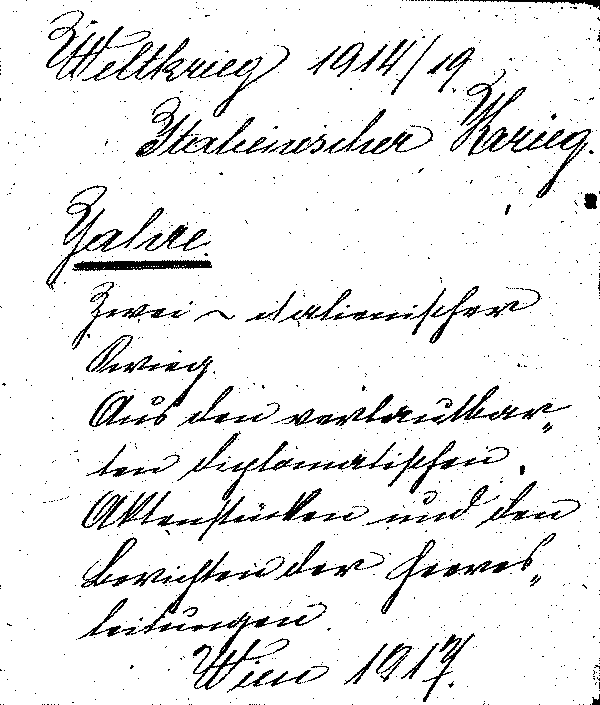 Weltkrieg 1914/19.
Italienischer Krieg.
Jahre
Zwei ~ italienischer
Krieg.
Aus den verlautbar„
ten diplomatischen
Aktenstücken und den
Berichten der Heeres„
leitungen.
Wien 1917.